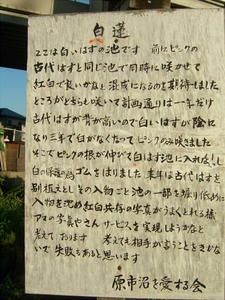 白蓮
ここは白いはすの池です 前にピンクの
古代はすと同じ池で同時に咲かせて
紅白で良いかなと混成になるのを期待しました
ところがどちらも咲いて計画通りは一年だけ
古代はすが背が高いので白いはすが陰に
なり三年で白がなくなってピンクのみ咲きました
そこでピンクの根が伸びて白はす池に入れなくし
白の保護の為ゴムをはりました 来年は古代はすを
別植えとしその入物ごと池の一部を堀り低めに
入物を沈め紅白共存の写真がうまくとれる様
アマの写真やさんサービスを実現しようかなと
考えております 考えても相手がようことをきかな
いで失敗もあると思います
原市沼を愛する会